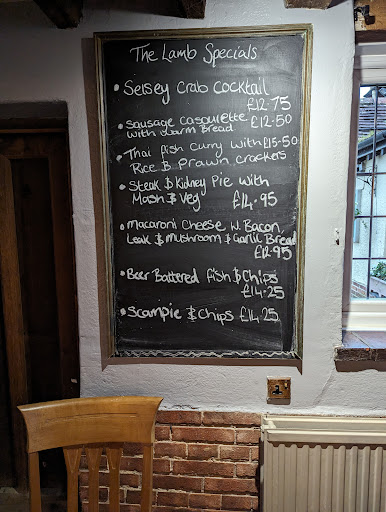 The Lamb Specials
• Selsey Crab Cocktail
£12.75
• Sausage Casourette £12.50
with Warm Bread
• Thai fish Curry with £15.50
Rice & Prawn crackers
• Steak & Kidney Pie with
Mash & Veg £14.95
• Macaroni Cheese W. Bacon,
Leak & Mushroom & Garlic Bread
£12.95
• Beer Battered fish & Chips
£14.25
• Scampie & Chips £14.25